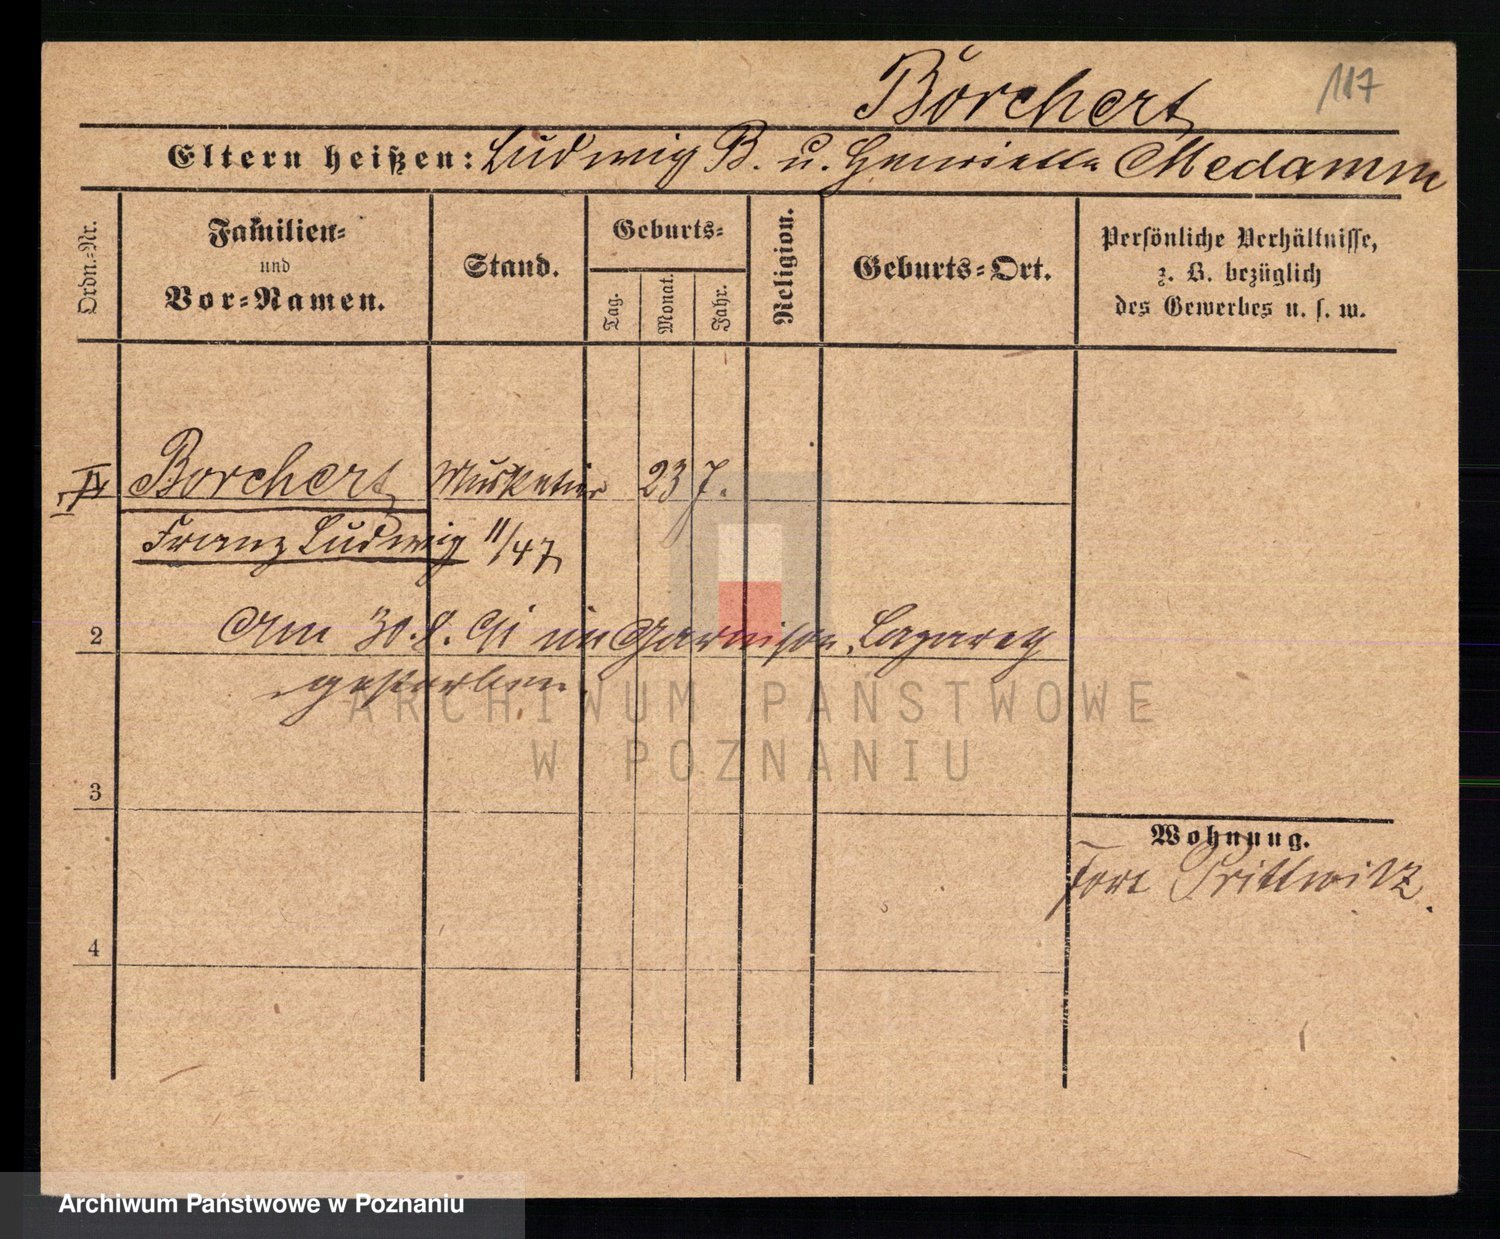 117
Borchert
Eltern heißen: Ludwig B. u. Henriette Medamm
Ordn.-Nr.
Familien-
und
Vor-Namen.
Stand.
Geburts-
Tag.
Monat.
Jahr.
Religion.
Geburts-Ort.
Persönliche Verhältnisse,
z. B. bezüglich
des Gewerbes u. s. w.
Borchert Musketier 23 J.
Franz Ludwig 11/47
2 Am 30.8.91 im Garnison Lazareth
gestorben.
ARCHIWUM PAŃSTWOWE
W POZNANIU
3
Wohnung.
Fort Prittwitz.
4
Archiwum Państwowe w Poznaniu